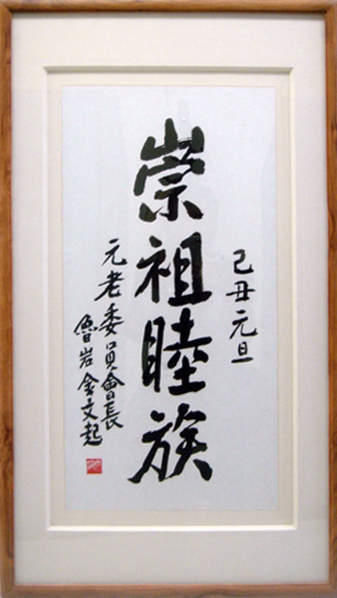 己丑元旦
崇祖睦族
元老委員會長
魯岩金文起